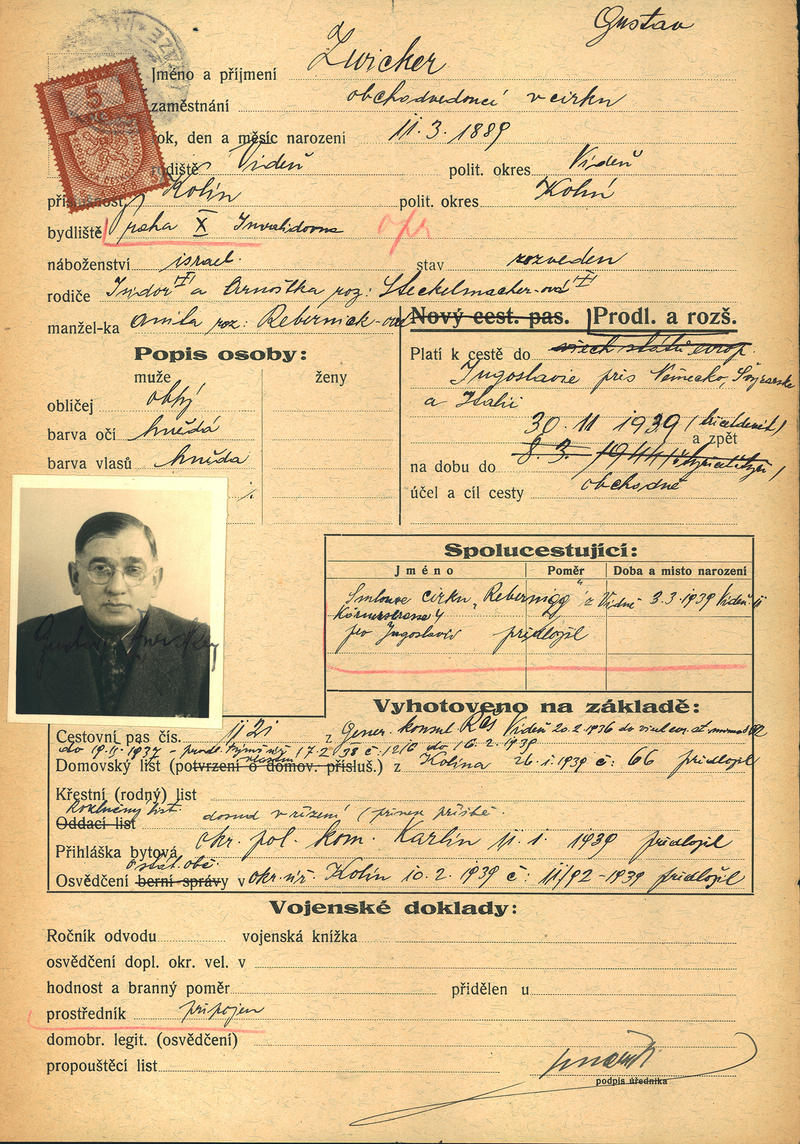 Gustav
Jméno a příjmení Zwicker
zaměstnání obchodvedoucí v cirku
KOLEK
5
ok, den a měsíc narození 11. 3. 1889
rodiště Vídeň polit. okres Vídeň
přísl Kolín polit. okres Kolín
bydliště Praha X Invalidovna
náboženství israel. stav rozveden
rodiče Isidor a Arnoštka roz: Steckelmacher-ová
manžel-ka roz: Rebernick-ová
Nový cest. pas. Prodl. a rozš.
Popis osoby:
muže ženy
obličej oblý
barva očí hnědá
barva vlasů hněda
Platí k cestě do všech států evrop.
Jugoslavie přes Německo, Švýcarsko
a Italii
30. 11 1939
a zpět
na dobu do 8. 3. 1944
účel a cíl cesty obchodně
Spolucestující:
Jméno Poměr Doba a místo narození
Smlouva cirku „Rebernigg" z Vídně 3.3.1939 Vídeň II
Körnerstrasse 4
pro Jugoslavii předložil
Vyhotoveno na základě:
Cestovní pas čís. z Gener. konsul RČS Vídeň 20.2.1936 do
do 17.2 38 č. 1210 do 16. 2. 1939
Domovský list (potvrzení o domov. přísluš.) z Kolína 26. 1. 1939 č: 66 předložil
Křestní (rodný) list
Rozlučný list. dosud v řízení
Oddací list
Přihláška bytová okr. pol. kom. Karlín 11. 1. 1939 předložil
o stát. obč.
Osvědčení berní správy v okr. úř. Kolín 10. 2. 1939 č: 11/92-1939 předložil
Vojenské doklady:
Ročník odvodu vojenská knížka
osvědčení dopl. okr. vel. v
hodnost a branný poměr přidělen u
prostředník připojen
domobr. legit. (osvědčení)
propouštěcí list
podpis úředníka